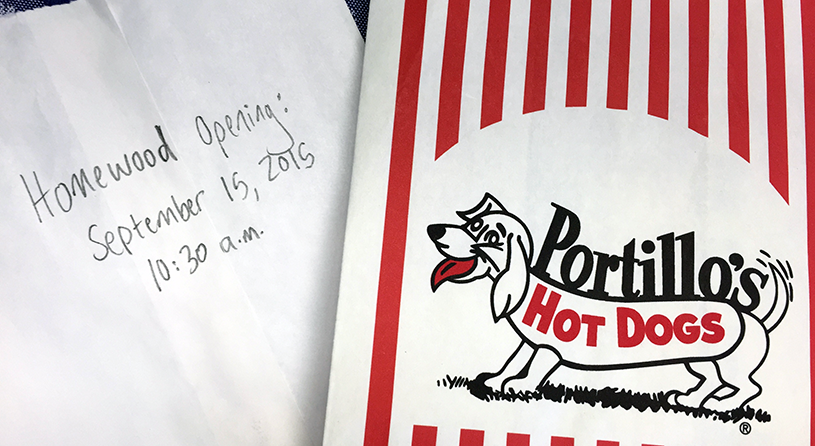 Homewood Opening:
September 15, 2015
10:30 a.m.
Portillo's
HOT DOGS
®